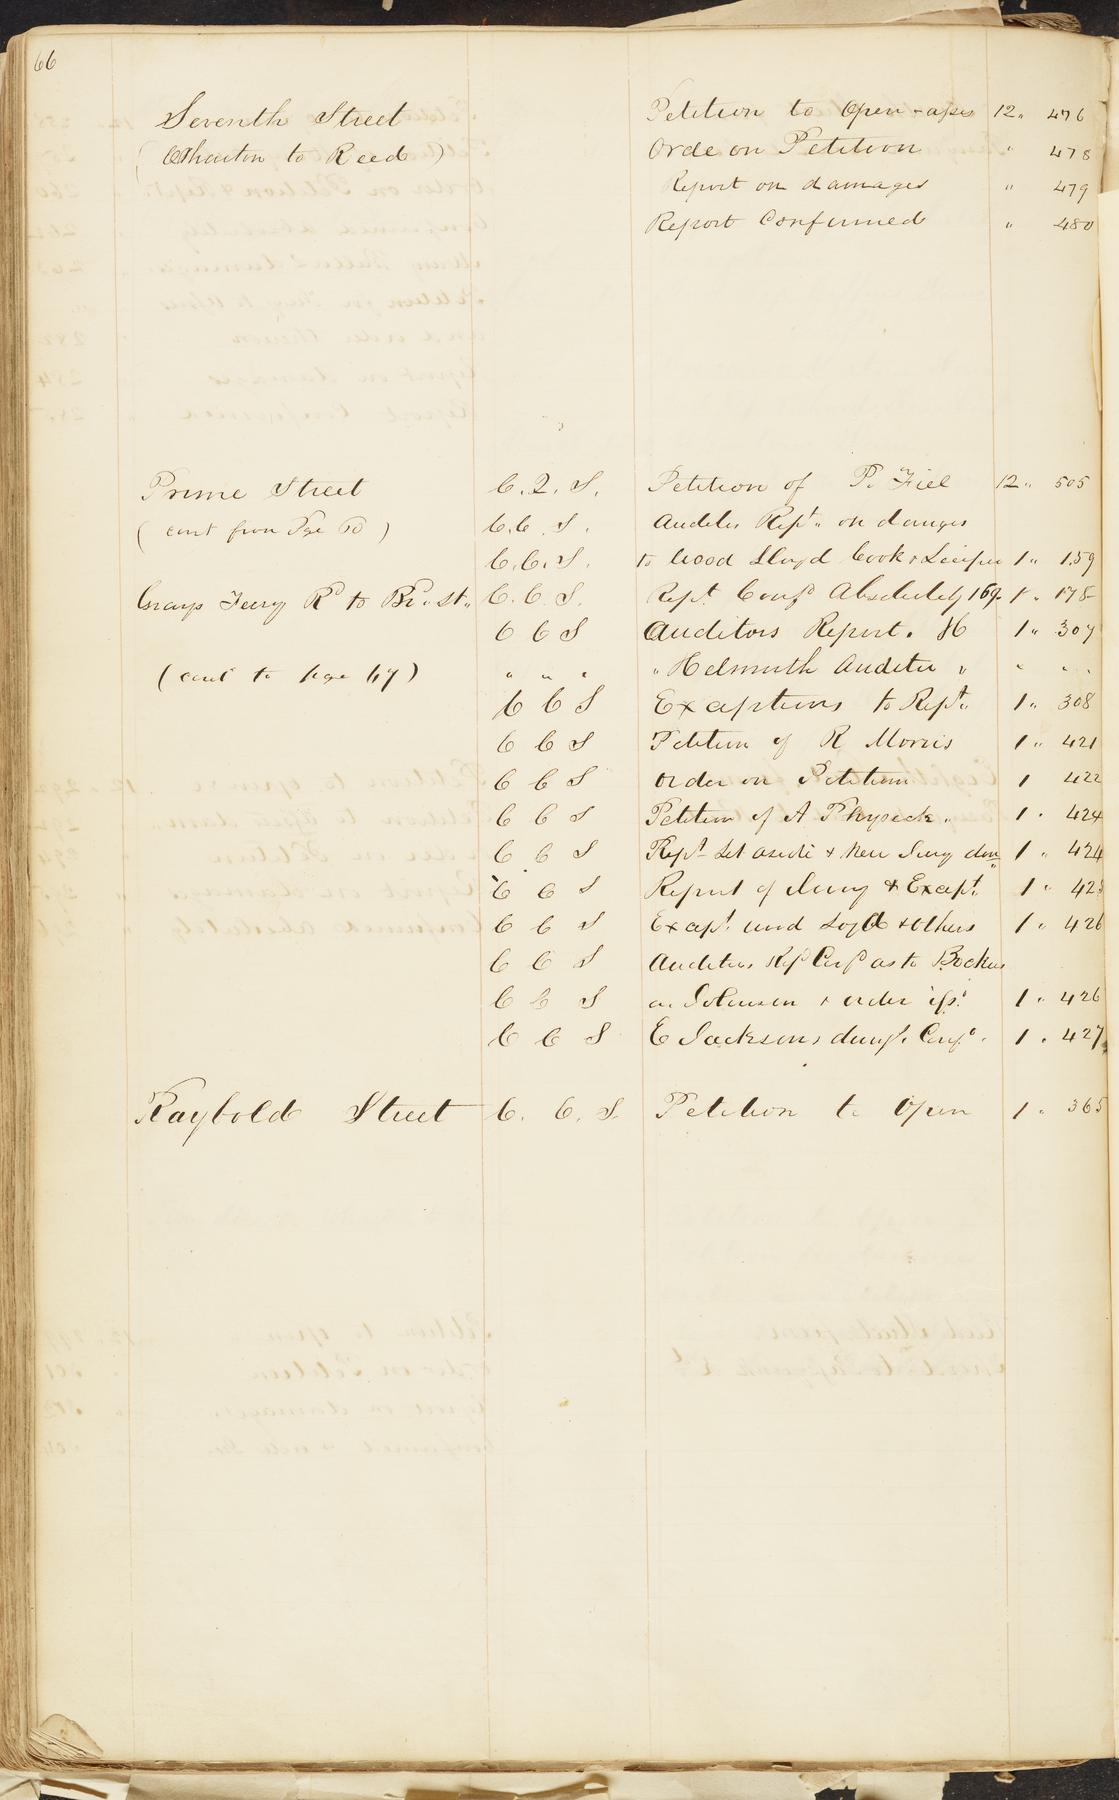 66
Seventh Street Petition to Open - asses 12 " 476
( Wharton to Reed ) Orde on Petition " 478
Report on damages " 479
Report Confirmed " 480
Prime Street C. Q. S. Petition of P. Fiel 12 " 505
( cont from Pge 60 ) C.C. S. Auditrs Rept. on damges
C.C. S. to Wood Lloyd Cook & Leiper 1 " 159
Grays Ferry Rd to Br. St. C. C. S. Rept Conf Absolutely 169 1 " 178
C C S Auditors Report. H 1 " 307
( cont to page 67 ) " " " " Helmuth Auditor " " " "
C C S Exceptions to Rept. 1 " 308
C C S Petition of R Morris 1 " 421
C C S Order on Petition 1 422
C C S Petition of A Physick. 1 " 424
C C S Rept Set aside & New Jury 1 " 424
C C S Report of Jury & Except. 1 " 425
C C S Excpt. & others 1 " 426
C C S Auditrs Rep Conf as to
C C S & order 1 " 426
C C S E Jacksons dmgs. Conf. 1 " 427
Raybold Street C. C. S. Petition to Open 1 " 365